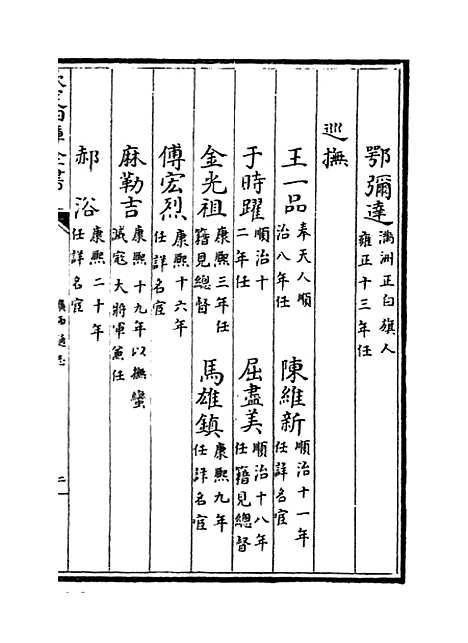 鄂彌達 滿洲正白旗人雍正十三年任
巡撫
王一品 奉天人順治八年任 陳維新 順治十一年任詳名宦
于時躍 順治十二年任 屈盡美 順治十八年任籍見總督
金光祖 康熙三年任籍見總督 馬雄鎮 康熙九年任詳名宦
傅宏烈 康熙十六年任詳名宦
麻勒吉 康熙十九年以撫蠻滅寇大將軍兼任
郝浴 康熙二十年任詳名宦
欽定四庫全書 廣西通志 二